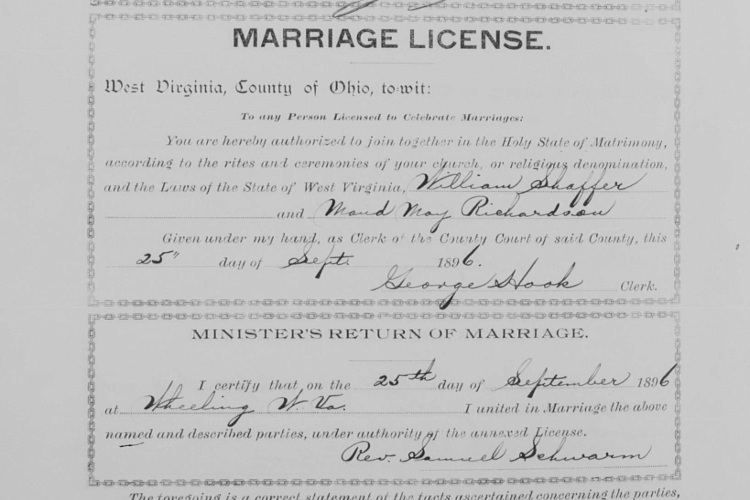 MARRIAGE LICENSE.
West Virginia, County of Ohio, to-wit:
To any Person Licensed to Celebrate Marriages:
You are hereby authorized to join together in the Holy State of Matrimony,
according to the rites and ceremonies of your church, or religious denomination,
and the Laws of the State of West Virginia, William Shaffer
and Maud May Richardson
Given under my hand, as Clerk of the County Court of said County, this
25" day of Sept. 1896.
George Hook Clerk.
MINISTER'S RETURN OF MARRIAGE.
I certify that on the 25th day of September 1896
at Wheeling W. Va. I united in Marriage the above
named and described parties, under authority of the annexed License.
Rev. Samuel Schwarm
The foregoing is a correct statement of the facts ascertained concerning the parties,